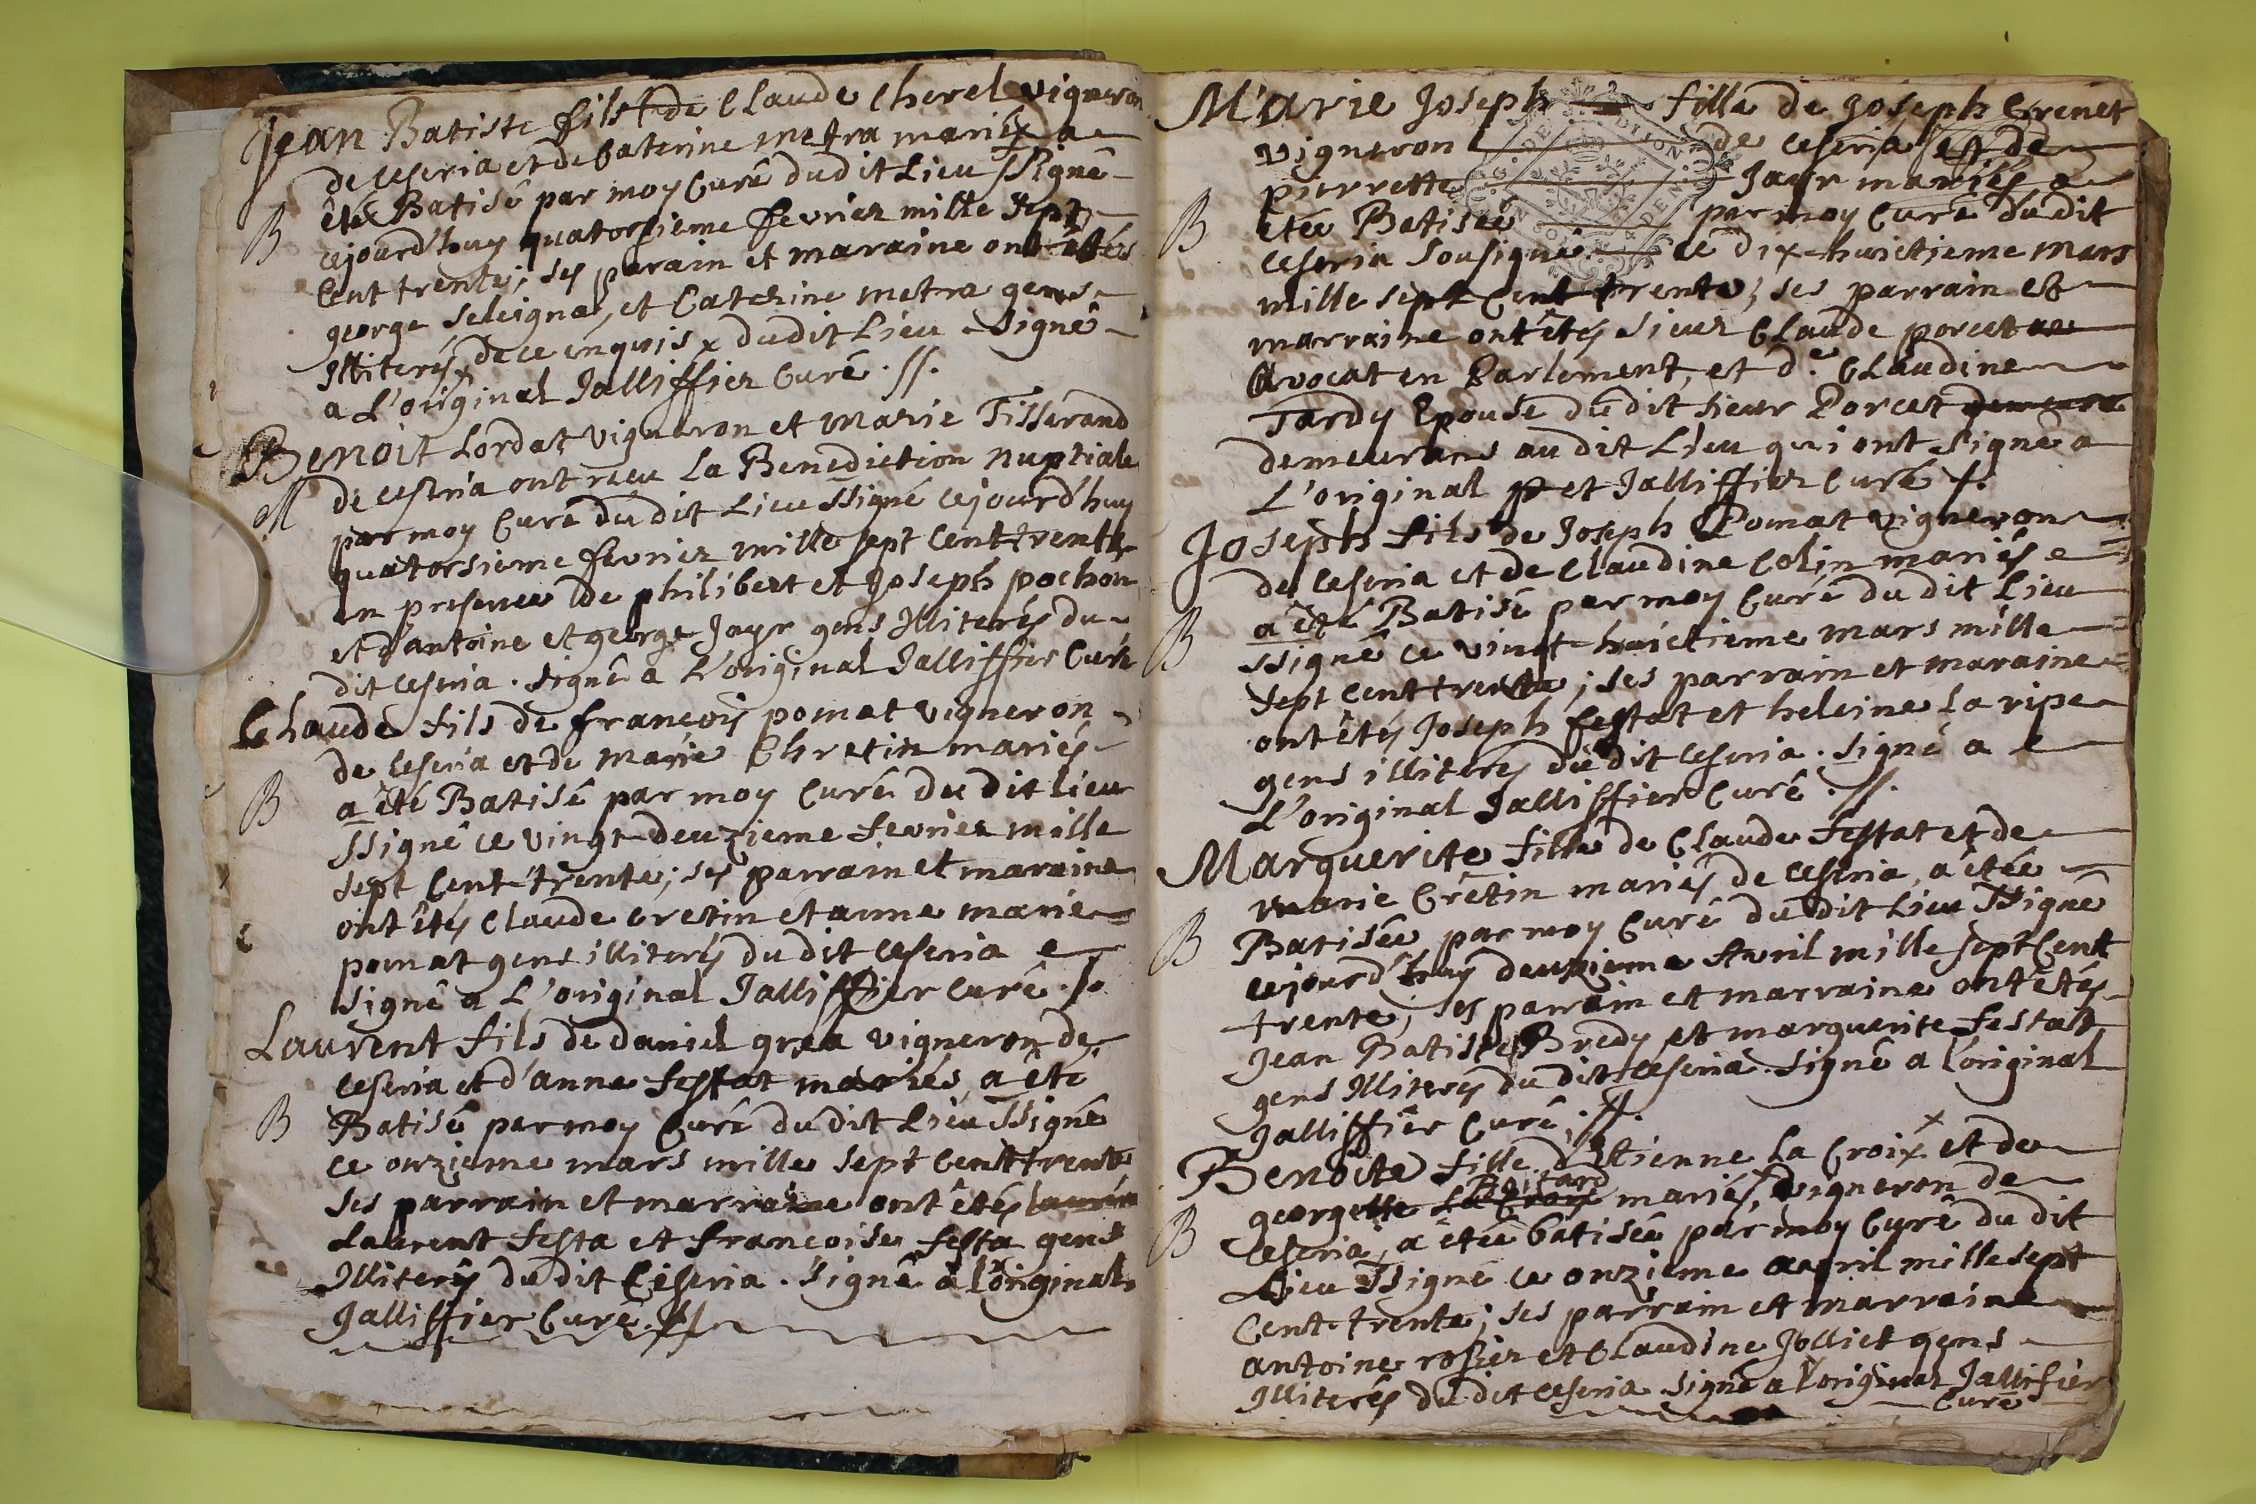 Jean Batiste fils de Claude Cherel vigneron
de ceseria et de Caterine metra mariéx a
été Batisé par moy Curé dudit Lieu ssigné
B
cejourd'huy quatorsieme fevrier mille sept
Cent trente; ses parain et maraine ont étés
george seleignal, et Catherine metra gens
Illiterés de ce enquis x dudit Lieu signé
a L'original Jalliffier Curé .//.
Benoit Lordat vigneron et Marie Tisserand
de ceseria ont recu La Benediction nuptiale
M
par moy Curé du dit Lieu ssigné cejourd'huy
quatorsieme fevrier mille sept Cent trente
en presence de philibert et Joseph pochon
et d'antoine et george Jayr gens Illiterés du
dit ceseria . signé a L'original Jalliffier Curé
Claude fils de françois pomat vigneron
de ceseria et de marie Chretin mariés
B
a été Batisé par moy Curé du dit lieu
ssigné ce vingt deuzieme fevrier mille
sept Cent trente; ses parrain et maraine
ont étés Claude cretin et anne marie
pomat gens illiterés du dit ceseria
signé a L'original Jalliffier curé ./.
Laurent fils de daniel grea vigneron de
ceseria et d'anne festat mariés, a été
B
Batisé par moy Curé du dit Lieu ssigné
ce onzieme mars mille sept Cent trente
ses parrain et marraine ont étés laurent
Laurent festa et francoise festa gens
Illiterés du dit Ceseria . signé a l'original
Jalliffier Curé .//
Marie Joseph fille de Joseph Grenet
vigneron de ceseria et de
pierrette Jayr mariés a
B
etée Batisée par moy Curé du dit
ceseria sousigné ce dix-huictieme mars
mille sept Cent trente; ses parrain et
marraine ont étés sieur Claude porcet
Avocat en Parlement, et d.e Claudine
Tardy Epouse du dit sieur Porcet demeura
demeurans au dit Lieu qui ont signé a
L'original et Jalliffier Curé ./.
Joseph fils de Joseph Pomat vigneron
de ceseria et de Claudine Colin mariés
a été Batisé par moy Curé du dit Lieu
B
ssigné ce vingt-huictieme mars mille
sept Cent trente; ses parrain et maraine
ont étés Joseph festat et heleine la ripe
gens illiterés du dit ceseria . signé a
L'original Jalliffier Curé .//.
Marguerite fille de Claude festat et de
marie Crétin mariés de ceseria, a étée
B
Batisée par moy Curé du dit Lieu ssigné
cejourd'huy deuzieme Avril mille sept Cent
trente; ses parrain et marraine ont étés
Jean Batiste Bredy et marguerite festat
gens Illiterés du dit ceseria . signé a l'original
Jalliffier Curé .//.
Benoite fille d'Etienne La Croix x et de
Baitard
georgette La Croix mariés, x vigneron de
B
ceseria, a étée batisée par moy Curé du dit
Lieu ssigné ce onzieme avril mille sept
Cent trente; ses parrain et marraine
antoine rosier et Claudine Jolliet gens
Illiterés du dit ceseria signé a l'original Jallifier
Curé